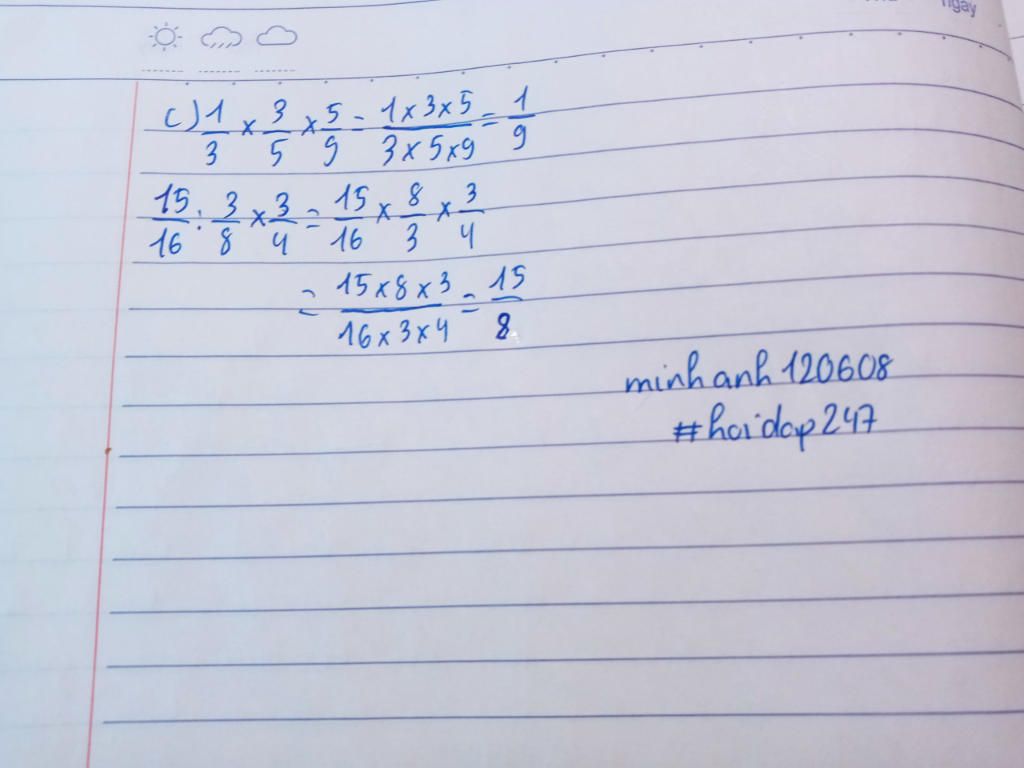 ngay
c) 1/3 × 3/5 × 5/9 = 1×3×5/3×5×9 = 1/9
15/16 : 3/8 × 3/4 = 15/16 × 8/3 × 3/4
= 15×8×3/16×3×4 = 15/8
minhanh120608
#hoidap247